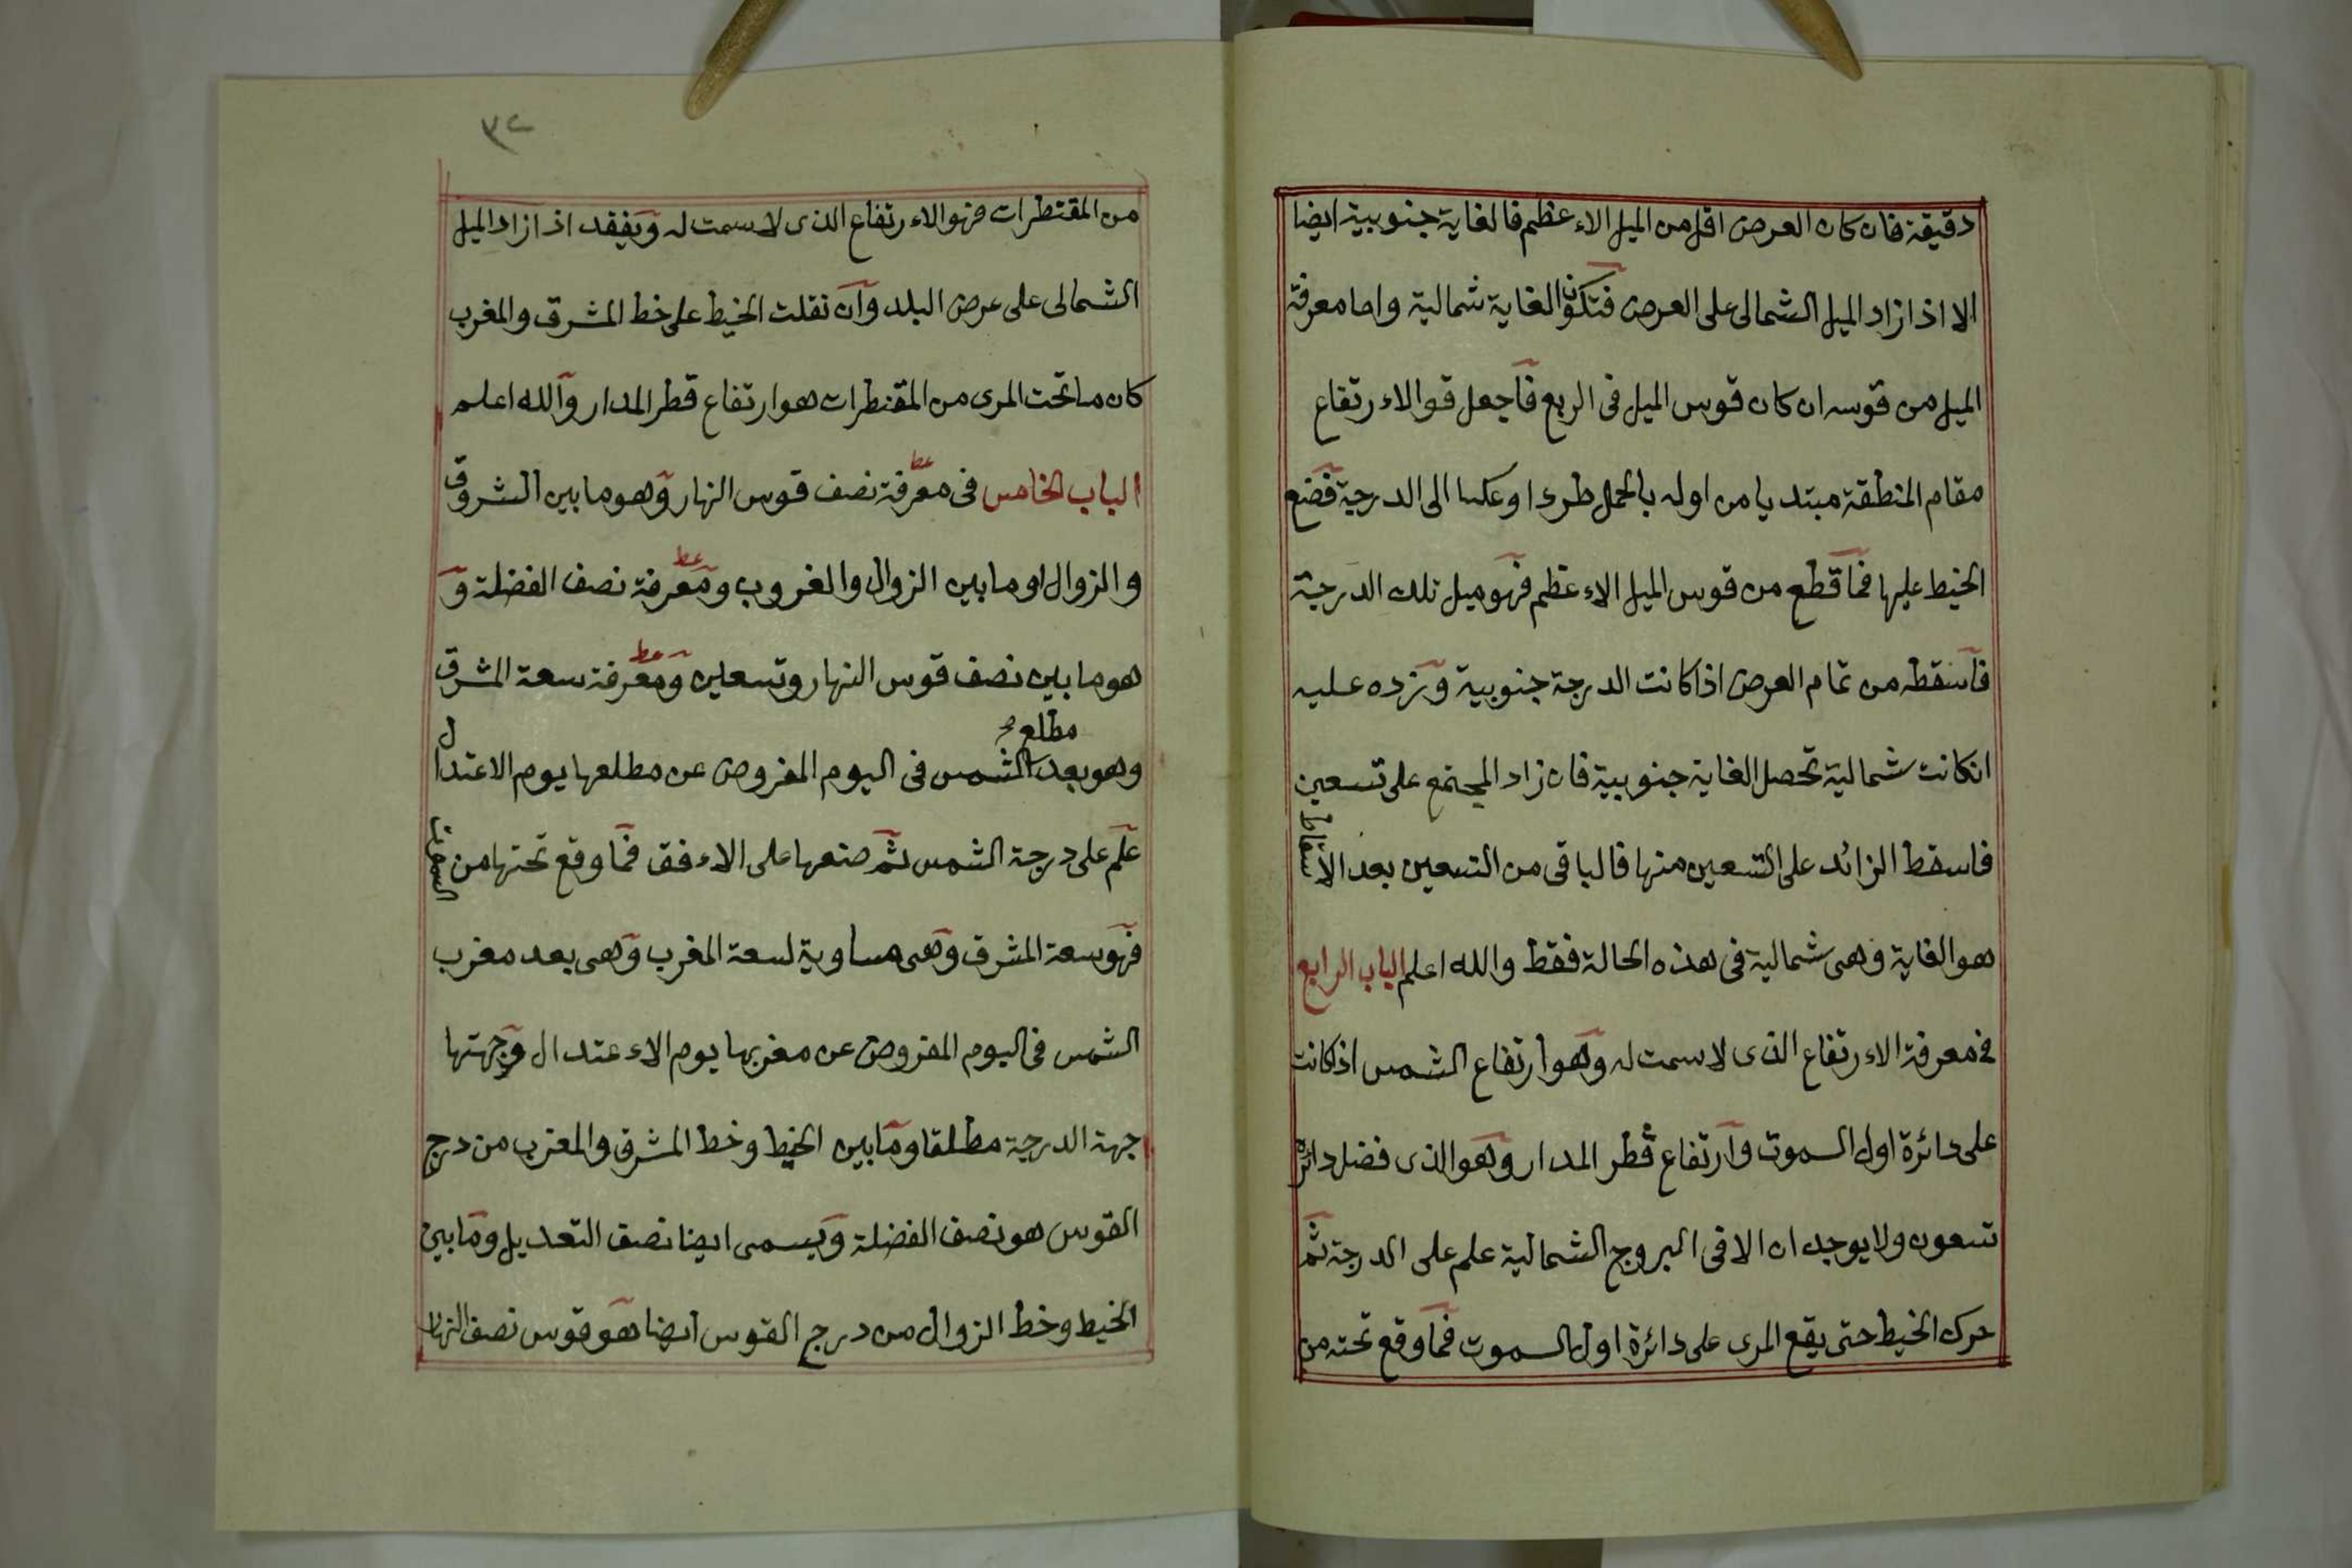 دقيقة فان كان العرض اقل من الميل الاءعظم فالغاية جنوبية ايضا
الا اذا زاد الميل الشمالى على العرض فتكون الغاية شمالية واما معرفة
الميل من قوسه ان كان قوس الميل فى الربع فاجعل قو الاءرتفاع
مقام المنطقة مبتديا من اوله بالحمل طردا وعكسا الى الدرجة فضع
الخيط عليها فما قطع من قوس الميل الاءعظم فهو ميل تلك الدرجة
فاسقطه من تمام العرض اذا كانت الدرجة جنوبية وزده عليه
انكانت شمالية تحصل الغاية جنوبية فان زاد المجتمع على تسعين
فاسقط الزائد على التسعين منها فالباقى من التسعين بعد الاسقاط
هو الغاية وهى شمالية فى هذه الحالة فقط والله اعلم الباب الرابع
فى معرفة الاءرتفاع الذى لا سمت له وهو ارتفاع الشمس اذا كانت
على دائرة اول السموت وارتفاع قطر المدار وهو الذى فضل دائره
تسعون ولا يوجدان الا فى البروج الشمالية علم على الدرجة ثم
حرك الخيط حتى يقع المرى على دائرة اول السموت فما وقع تحته من
٣٢
من المقنطرات فهو الاءرتفاع الذى لا سمت له ويفقد اذا زاد الميل
الشمالى على عرض البلد وان نقلت الخيط على خط المشرق والمغرب
كان ما تحت المرى من المقنطرات هو ارتفاع قطر المدار والله اعلم
الباب الخامس فى معرفة نصف قوس النهار وهو ما بين الشروق
والزوال او ما بين الزوال والغروب ومعرفة نصف الفضلة و
هو ما بين نصف قوس النهار وتسعين ومعرفة سعة المشرق
وهو بعد مطلع الشمس فى اليوم المفروض عن مطلعها يوم الاعتدال
علم على درجة الشمس ثم ضعها على الاءفق فما وقع تحتها من السموت
فهو سعة المشرق وهى مساوية لسعة المغرب وهى بعد مغرب
الشمس فى اليوم المفروض عن مغربها يوم الاءعتدال وجهتها
جهة الدرجة مطلقا وما بين الخيط وخط المشرق والمغرب من درج
القوس هو نصف الفضلة ويسمى ايضا نصف التعديل وما بين
الخيط وخط الزوال من درج القوس ايضا هو قوس نصف النهار